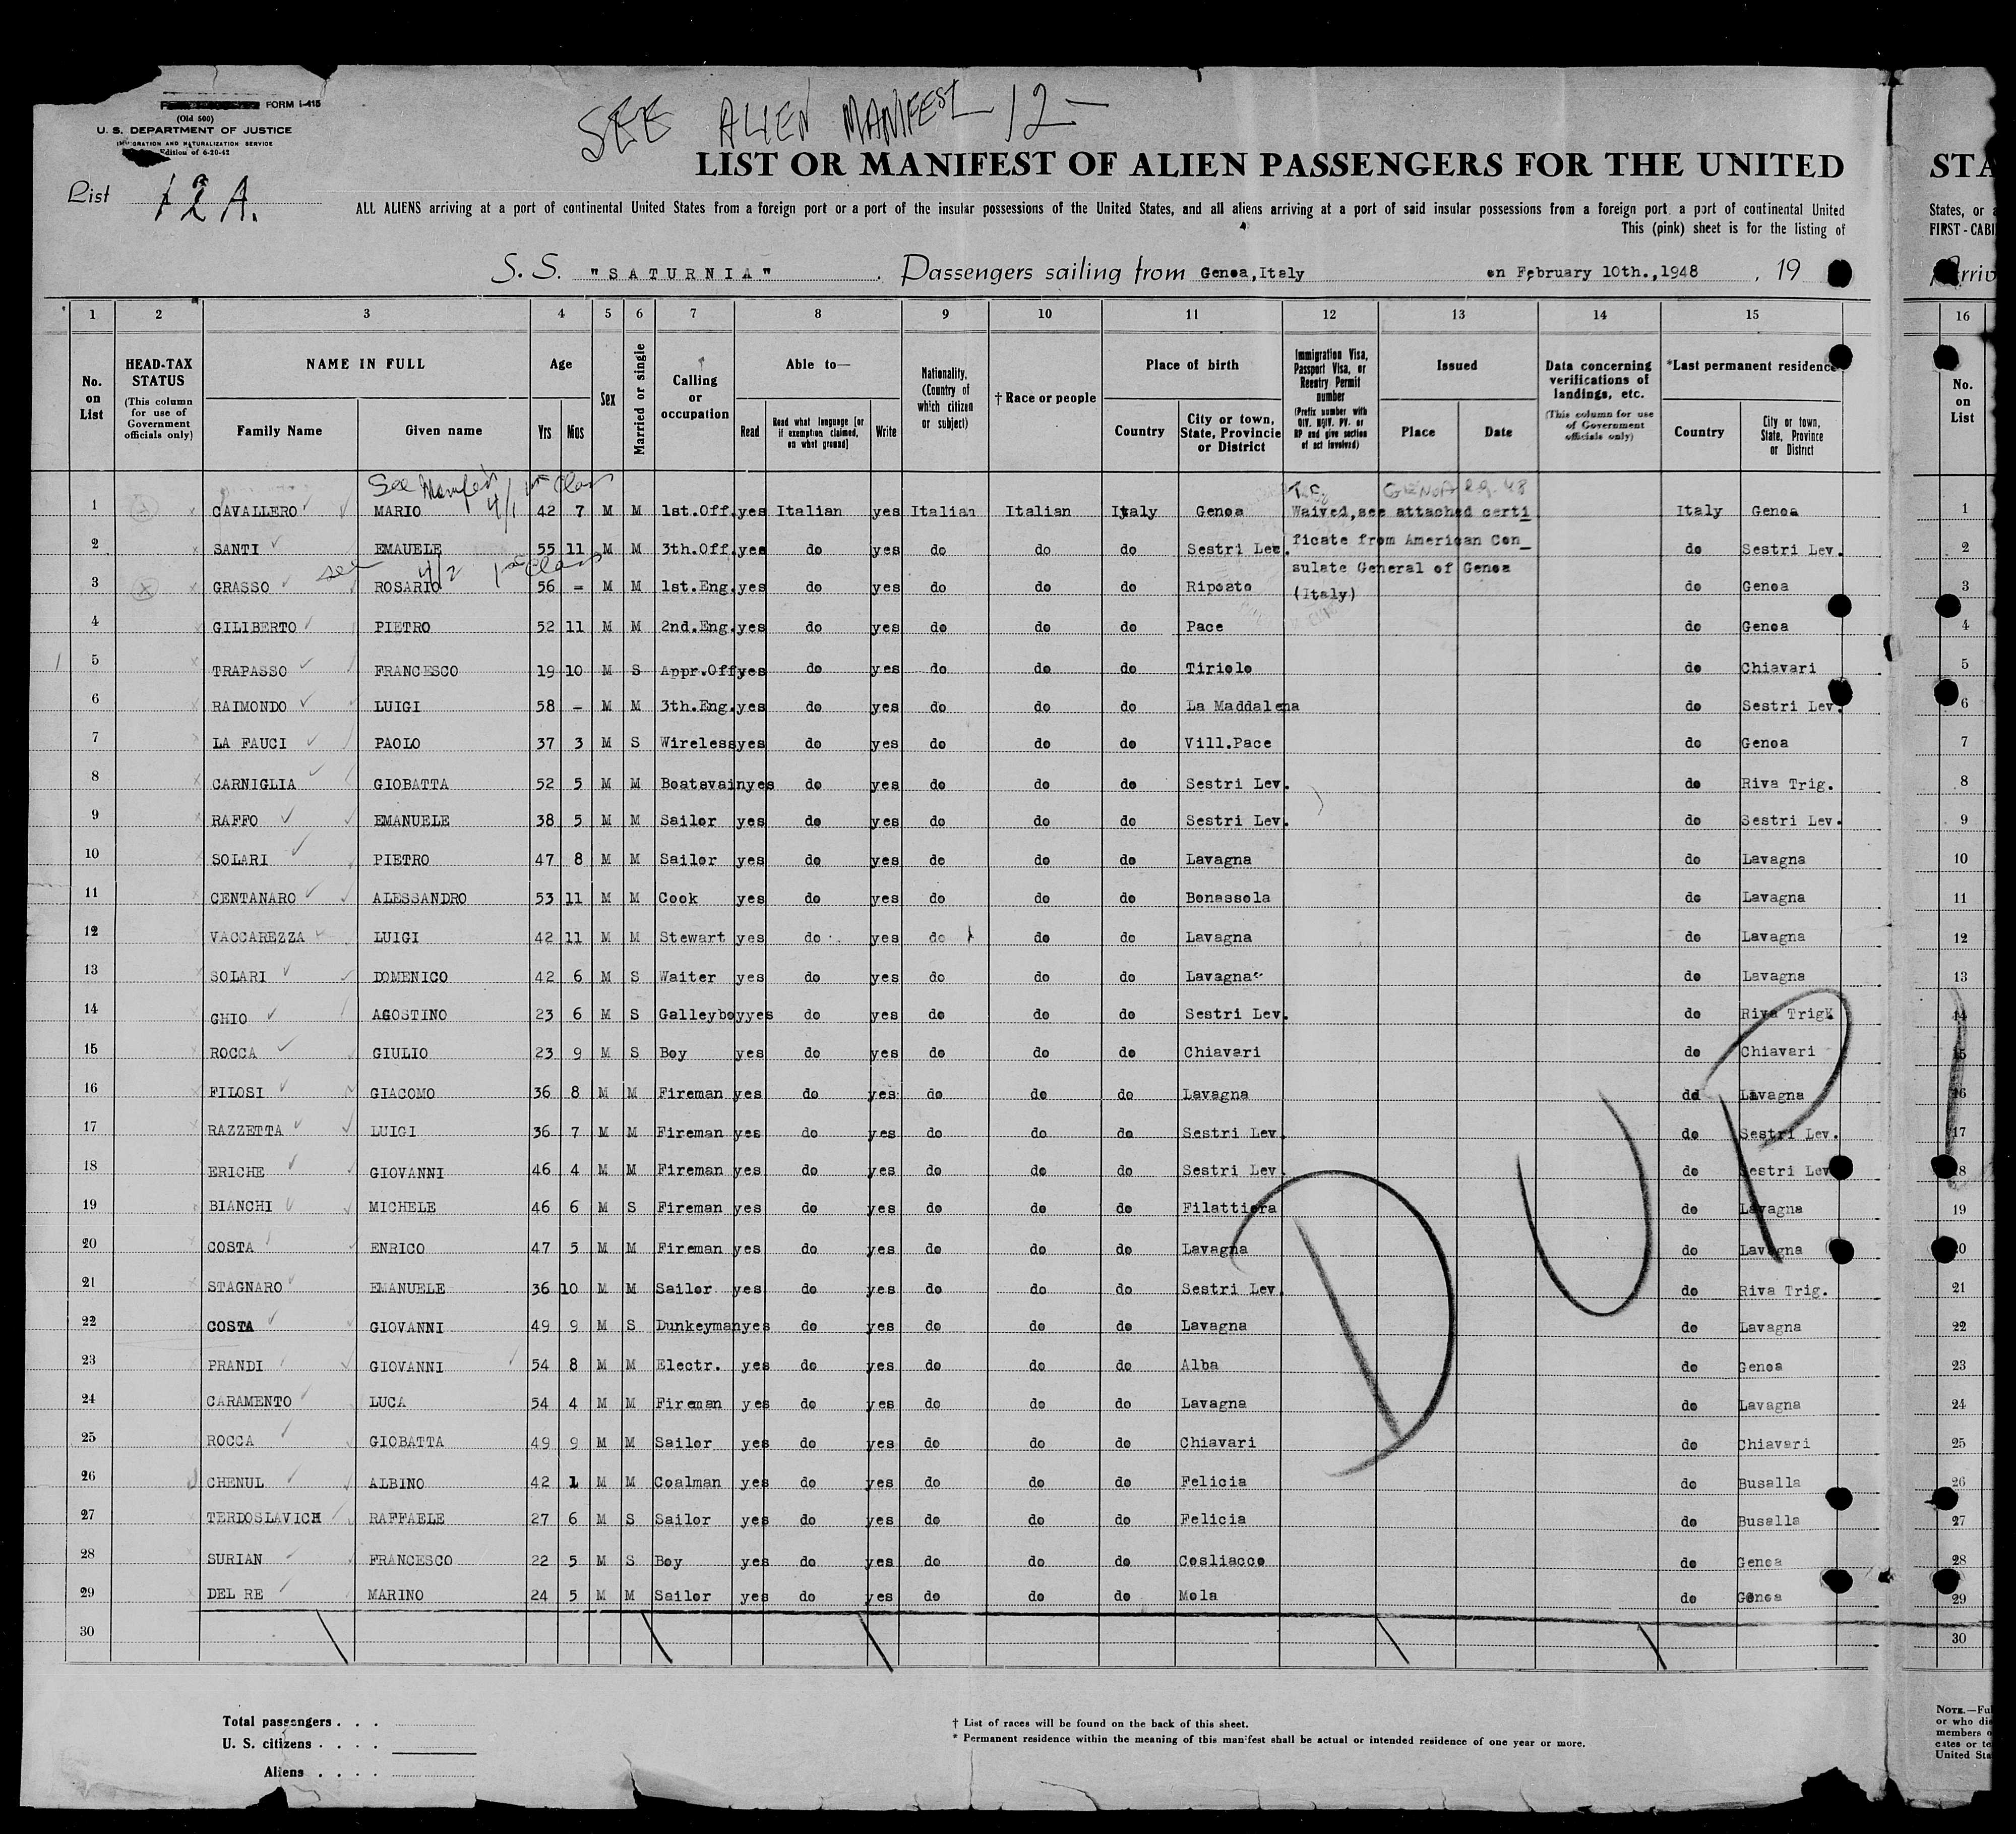 FORM I-415
(Old 500)
U. S. DEPARTMENT OF JUSTICE
IMMIGRATION AND NATURALIZATION SERVICE
Edition of 6-20-42
SEE ALIEN MANIFEST 12-
LIST OR MANIFEST OF ALIEN PASSENGERS FOR THE UNITED STA
List 12A.
ALL ALIENS arriving at a port of continental United States from a foreign port or a port of the insular possessions of the United States, and all aliens arriving at a port of said insular possessions from a foreign port, a port of continental United States, or a
This (pink) sheet is for the listing of FIRST-CABI
S. S. "SATURNIA" . Passengers sailing from Genoa,Italy on February 10th.,1948 , 19 Arriv
1 2 3 4 5 6 7 8 9 10 11 12 13 14 15 16
No. on List
HEAD-TAX STATUS
(This column for use of Government officials only)
NAME IN FULL
Family Name Given name
Age
Yrs Mos
Sex
Married or single
Calling or occupation
Able to—
Read
Read what language [or if exemption claimed, on what ground]
Write
Nationality, (Country of which citizen or subject)
† Race or people
Place of birth
Country
City or town, State, Province or District
Immigration Visa, Passport Visa, or Reentry Permit number
(Prefix number with QIV, NQIV, PV, or RP and give section of act involved)
Issued
Place Date
Data concerning verifications of landings, etc.
(This column for use of Government officials only)
*Last permanent residence
Country
City or town, State, Province or District
No. on List
See Manifest 4/1 1st Class
GENOA 2-9-48
1 CAVALLERO MARIO 42 7 M M 1st.Off. yes Italian yes Italian Italian Italy Genoa Waived,see attached certi_ Italy Genoa 1
2 SANTI EMAUELE 55 11 M M 3th.Off. yes do yes do do do Sestri Lev. ficate from American Con_ do Sestri Lev. 2
see 4/2 1st Class
sulate General of Genoa
3 GRASSO ROSARIO 56 - M M 1st.Eng. yes do yes do do do Riposto (Italy) do Genoa 3
4 GILIBERTO PIETRO 52 11 M M 2nd.Eng. yes do yes do do do Pace do Genoa 4
5 TRAPASSO FRANCESCO 19 10 M S Appr.Off yes do yes do do do Tiriolo do Chiavari 5
6 RAIMONDO LUIGI 58 - M M 3th.Eng. yes do yes do do do La Maddalena do Sestri Lev. 6
7 LA FAUCI PAOLO 37 3 M S Wireless yes do yes do do do Vill.Pace do Genoa 7
8 CARNIGLIA GIOBATTA 52 5 M M Boatsvain yes do yes do do do Sestri Lev. do Riva Trig. 8
9 RAFFO EMANUELE 38 5 M M Sailor yes do yes do do do Sestri Lev. do Sestri Lev. 9
10 SOLARI PIETRO 47 8 M M Sailor yes do yes do do do Lavagna do Lavagna 10
11 CENTANARO ALESSANDRO 53 11 M M Cook yes do yes do do do Bonassola do Lavagna 11
12 VACCAREZZA LUIGI 42 11 M M Stewart yes do yes do do do Lavagna do Lavagna 12
13 SOLARI DOMENICO 42 6 M S Waiter yes do yes do do do Lavagna do Lavagna 13
14 GHIO AGOSTINO 23 6 M S Galleyboy yes do yes do do do Sestri Lev. do Riva Trig. 14
15 ROCCA GIULIO 23 9 M S Boy yes do yes do do do Chiavari do Chiavari 15
16 FILOSI GIACOMO 36 8 M M Fireman yes do yes do do do Lavagna do Lavagna 16
17 RAZZETTA LUIGI 36 7 M M Fireman yes do yes do do do Sestri Lev. do Sestri Lev. 17
18 ERICHE GIOVANNI 46 4 M M Fireman yes do yes do do do Sestri Lev. do Sestri Lev 18
19 BIANCHI MICHELE 46 6 M S Fireman yes do yes do do do Filattiera do Lavagna 19
20 COSTA ENRICO 47 5 M M Fireman yes do yes do do do Lavagna do Lavagna 20
21 STAGNARO EMANUELE 36 10 M M Sailor yes do yes do do do Sestri Lev. do Riva Trig. 21
22 COSTA GIOVANNI 49 9 M S Dunkeyman yes do yes do do do Lavagna do Lavagna 22
23 PRANDI GIOVANNI 54 8 M M Electr. yes do yes do do do Alba do Genoa 23
24 CARAMENTO LUCA 54 4 M M Fireman yes do yes do do do Lavagna do Lavagna 24
25 ROCCA GIOBATTA 49 9 M M Sailor yes do yes do do do Chiavari do Chiavari 25
26 CHENUL ALBINO 42 1 M M Coalman yes do yes do do do Felicia do Busalla 26
27 TERDOSLAVICH RAFFAELE 27 6 M S Sailor yes do yes do do do Felicia do Busalla 27
28 SURIAN FRANCESCO 22 5 M S Boy yes do yes do do do Cosliacco do Genoa 28
29 DEL RE MARINO 24 5 M M Sailor yes do yes do do do Mola do Genoa 29
30 30
DUP
Total passengers . . .
U. S. citizens . . . .
Aliens . . . .
† List of races will be found on the back of this sheet.
* Permanent residence within the meaning of this manifest shall be actual or intended residence of one year or more.
NOTE.—Ful
or who di
members o
cates or te
United Sta